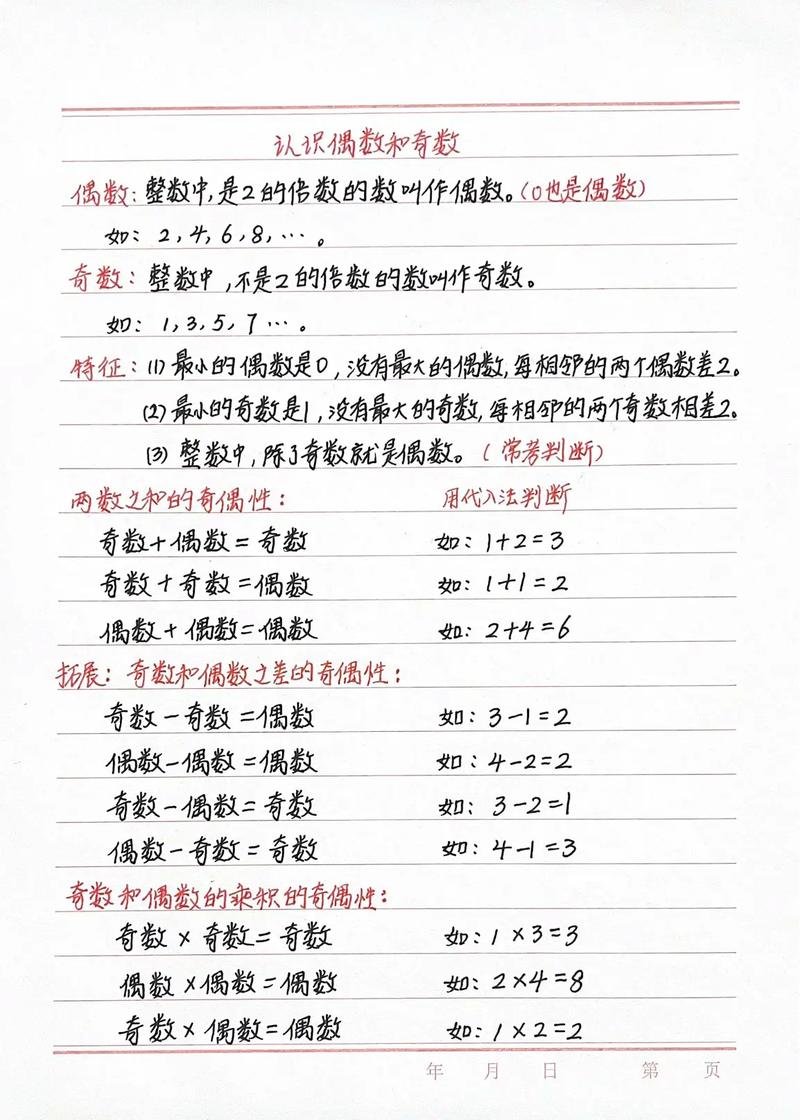 认识偶数和奇数
偶数：整数中，是2的倍数的数叫作偶数。（0也是偶数）
如：2，4，6，8，…。
奇数：整数中，不是2的倍数的数叫作奇数。
如：1，3，5，7…。
特征：(1)最小的偶数是0，没有最大的偶数，每相邻的两个偶数差2。
(2)最小的奇数是1，没有最大的奇数，每相邻的两个奇数相差2。
(3)整数中，除了奇数就是偶数。（常考判断）
两数之和的奇偶性： 用代入法判断
奇数＋偶数＝奇数 如：1+2=3
奇数＋奇数＝偶数 如：1+1=2
偶数＋偶数＝偶数 如：2+4=6
拓展：奇数和偶数之差的奇偶性：
奇数－奇数＝偶数 如：3-1=2
偶数－偶数＝偶数 如：4-2=2
奇数－偶数＝奇数 如：3-2=1
偶数－奇数＝奇数 如：4-1=3
奇数和偶数的乘积的奇偶性：
奇数×奇数＝奇数 如：1×3=3
偶数×偶数＝偶数 如：2×4=8
奇数×偶数＝偶数 如：1×2=2
年 月 日 第 页